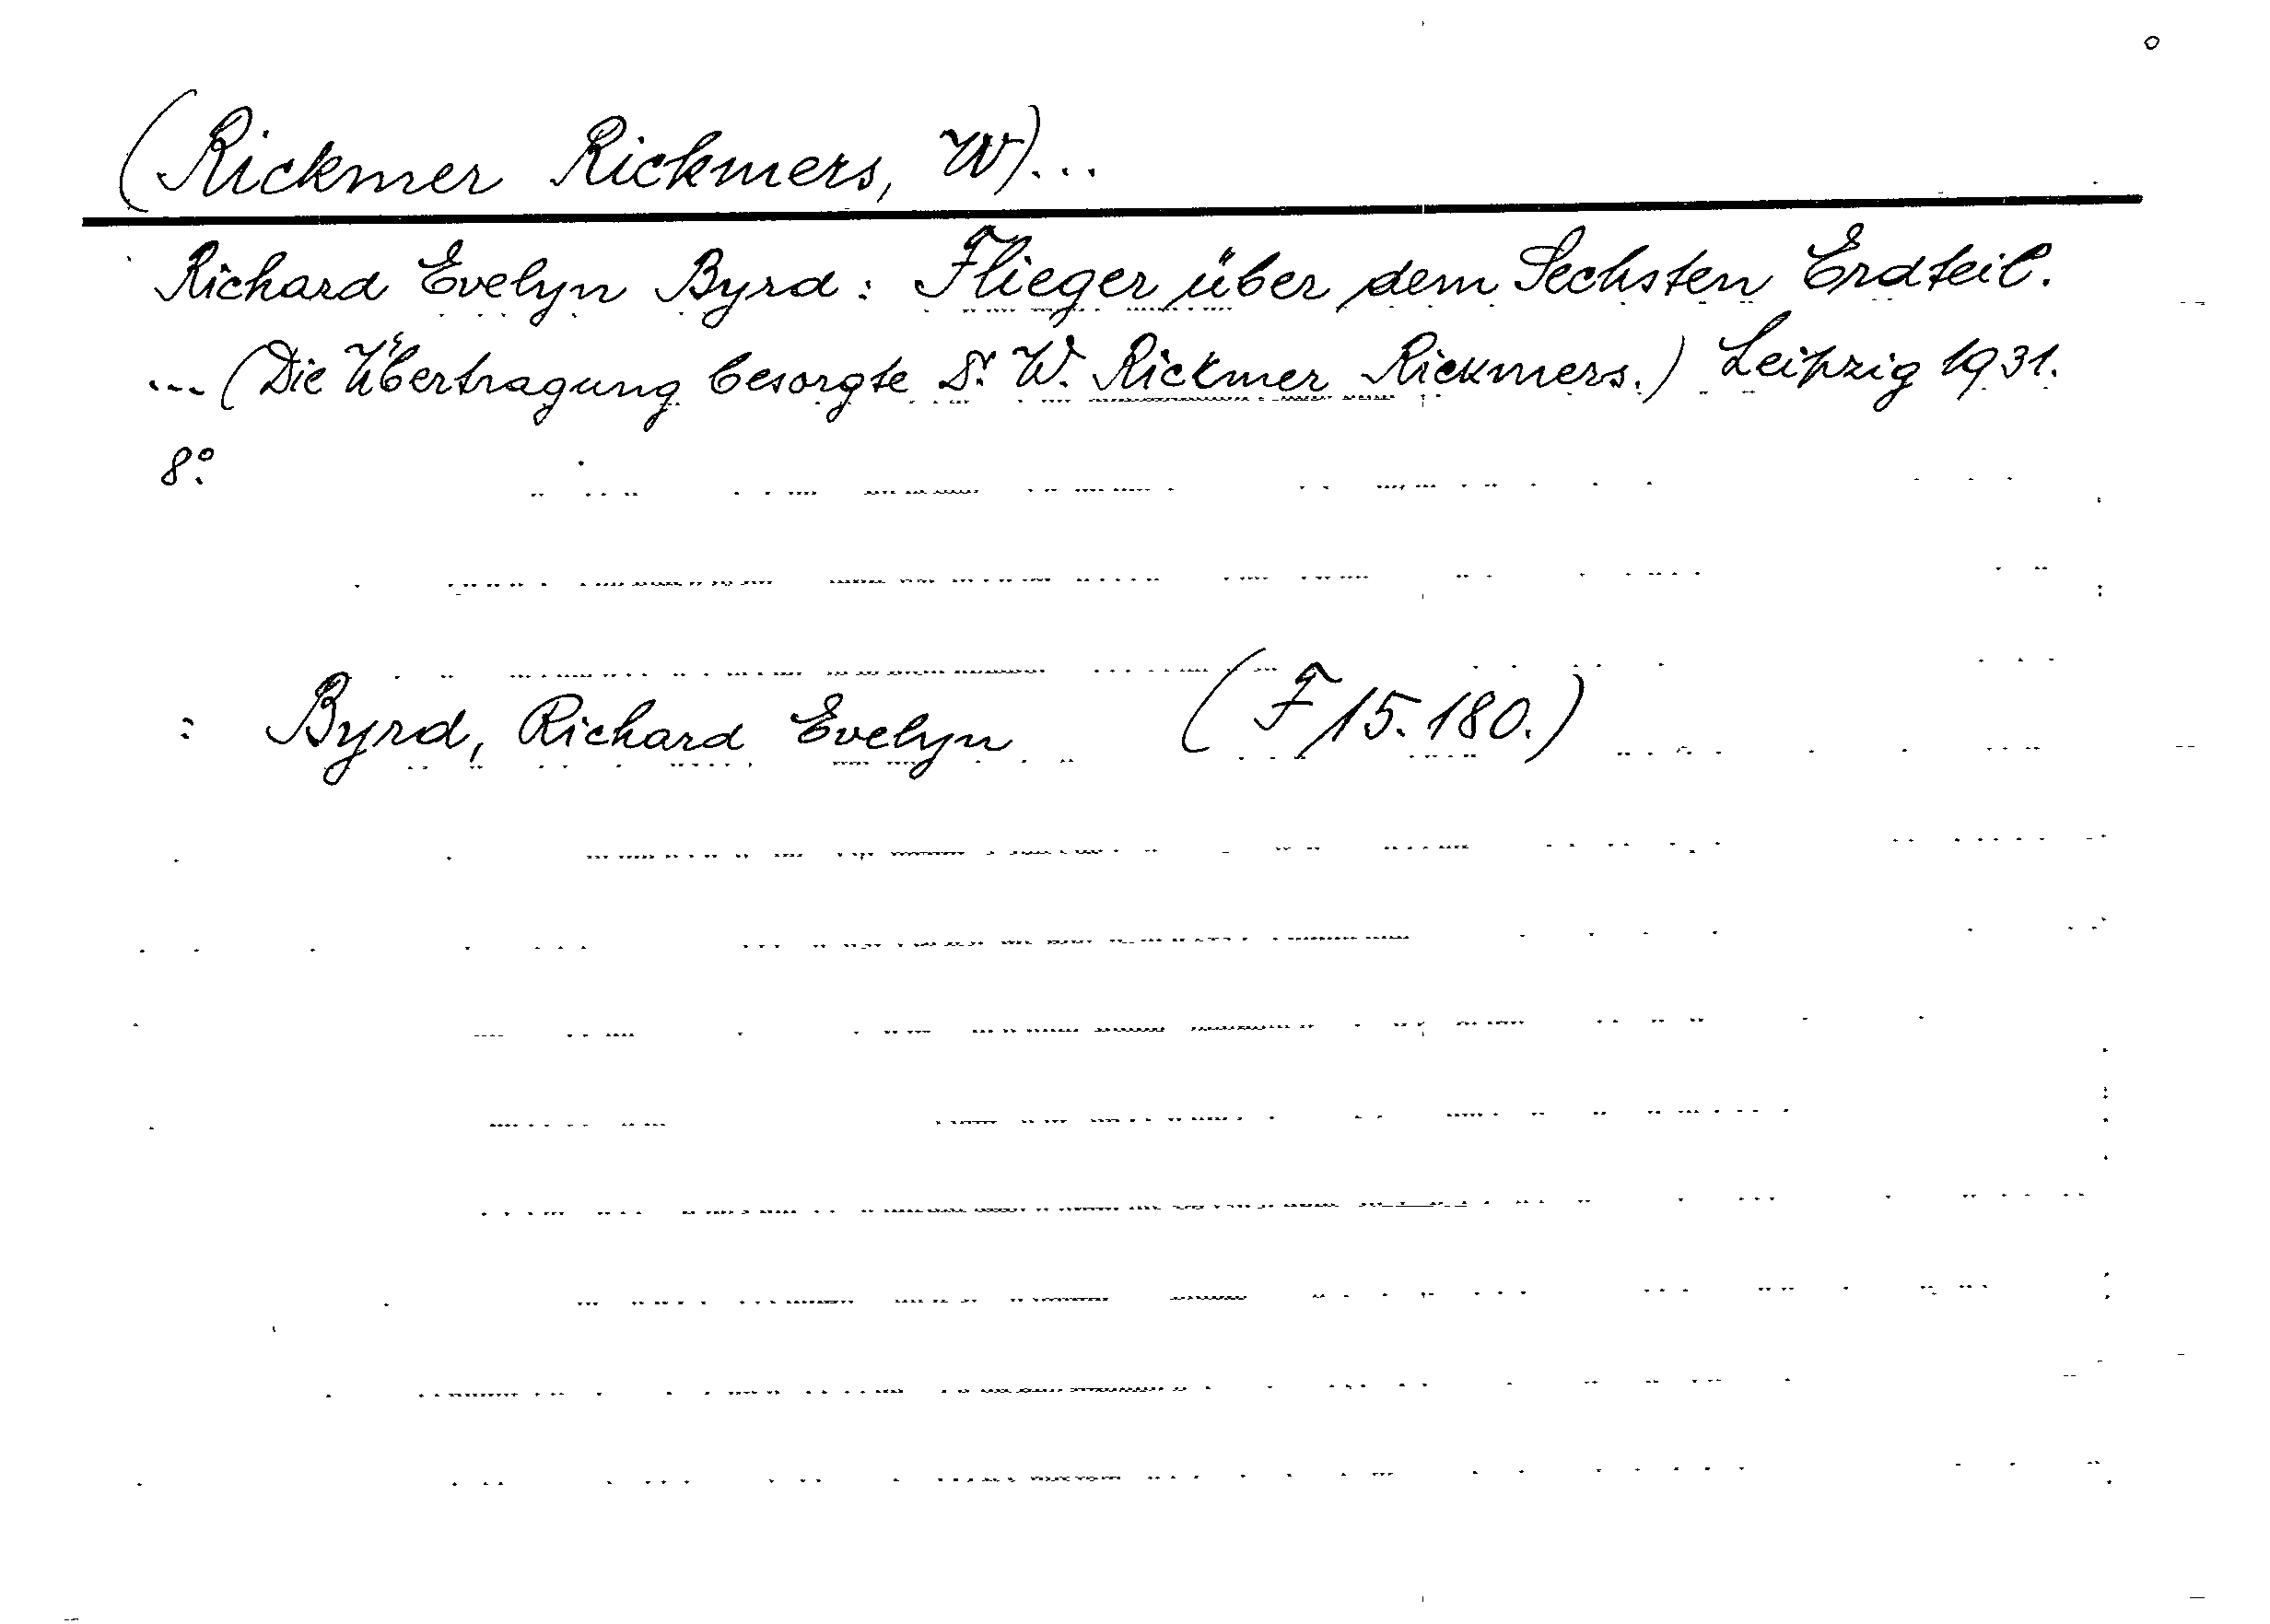 (Rickmer Rickmers, W)...
Richard Evelyn Byrd: Flieger über dem Sechsten Erdteil.
... (Die Übertragung besorgte Dr. W. Rickmer Rickmers.) Leipzig 1931.
8°.
: Byrd, Richard Evelyn (F 15.180.)